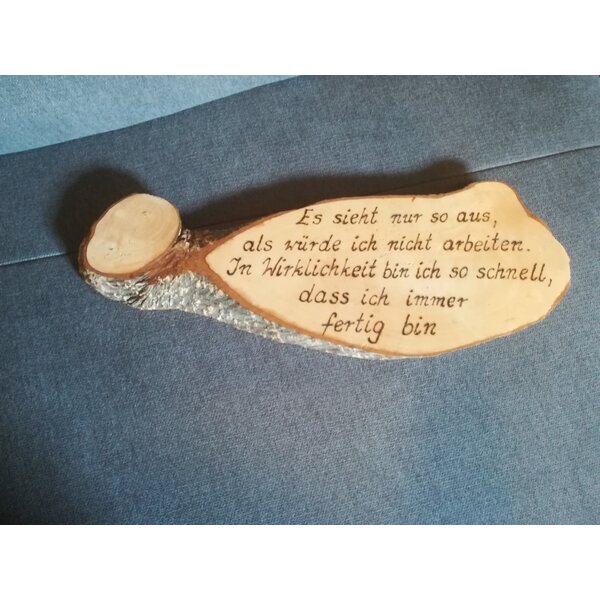 Es sieht nur so aus,
als würde ich nicht arbeiten.
In Wirklichkeit bin ich so schnell,
dass ich immer
fertig bin